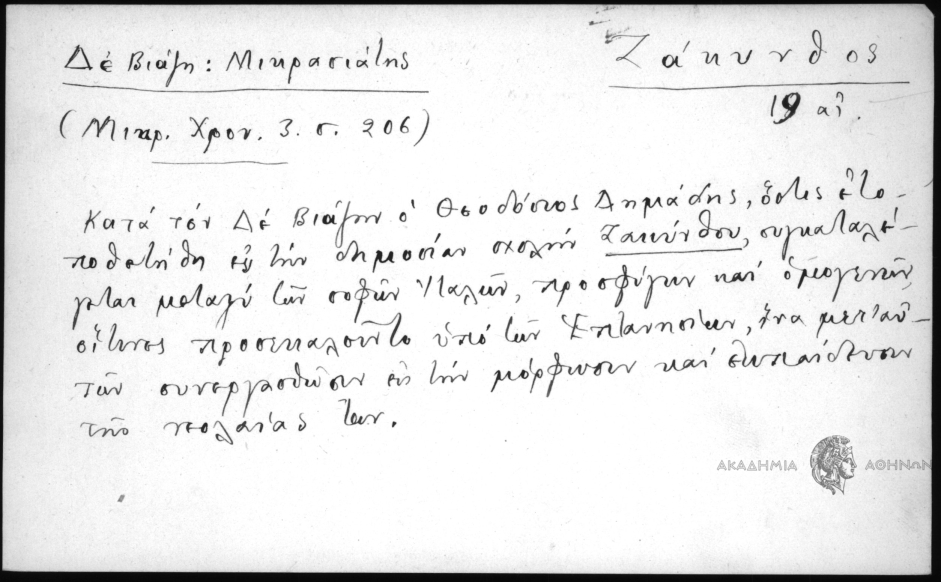 Δέ Βιάζη: Μικρασιάτης
Ζάκυνθος
19 αἰ.
(Μικρ. Χρον. 3. σ. 206)
Κατά τόν Δέ Βιάζην ὁ Θεοδόσιος Δημάδης, ὅστις ἐτο-
ποθετήθη εἰς τήν δημοσίαν σχολήν Ζακύνθου, συγκαταλέ-
γεται μεταξύ τῶν σοφῶν Ἰταλῶν, προσφύγων καί ὁμογενῶν,
οἵτινες προσεκαλοῦντο ὑπό τῶν Ἑπτανησίων, ἵνα μετ' αὐ-
τῶν συνεργασθῶσιν εἰς τήν μόρφωσιν καί ἐκπαίδευσιν
τῆς νεολαίας των.
ΑΚΑΔΗΜΙΑ ΑΘΗΝΩΝ